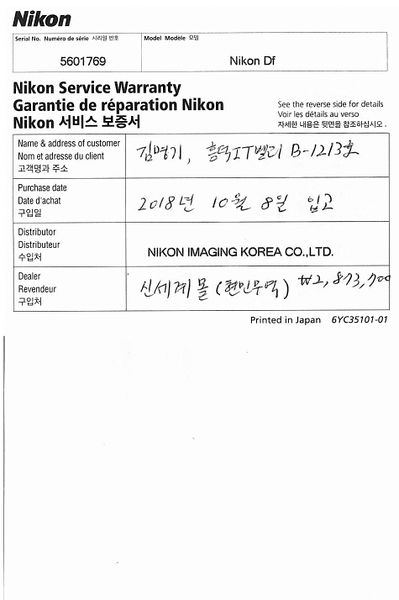 Nikon
Serial No. Numéro de série 시리얼 번호 Model Modèle 모델
5601769 Nikon Df
Nikon Service Warranty
Garantie de réparation Nikon
Nikon 서비스 보증서
See the reverse side for details
Voir les détails au verso
자세한 내용은 뒷면을 참조하십시오.
Name & address of customer
Nom et adresse du client
고객명과 주소
김명기, 흥덕IT벨리 B-1213호
Purchase date
Date d'achat
구입일
2018년 10월 8일 입고
Distributor
Distributeur
수입처
NIKON IMAGING KOREA CO.,LTD.
Dealer
Revendeur
구입처
신세계몰 (현인무역) ₩2,873,700
Printed in Japan 6YC35101-01